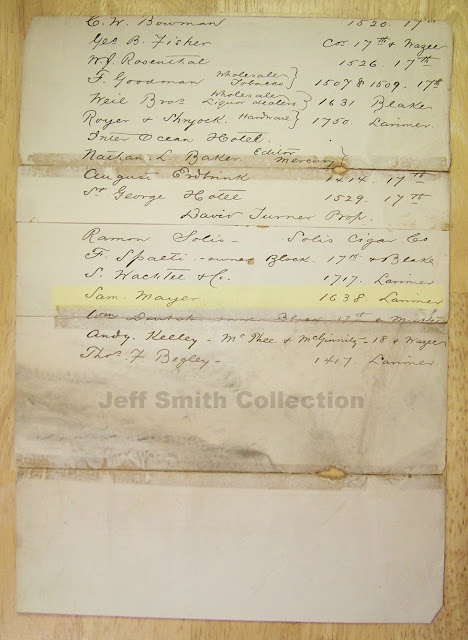 C. W. Bowman 1520. 17th
Geo B. Fisher Cor 17th & Wazee
W. J. Rosenthal 1526. 17th
F. Goodman Wholesale Tobacco } 1507 & 1509. 17th
Weil Bros Wholesale Liquor dealers } 1631 Blake
Royer & Shryock. Hardware } 1750. Larimer
Inter Ocean Hotel.
Nathan. L. Baker. Editor Mercury }
August Erdbrink 1414. 17th
St George Hotel 1529. 17th
David Turner Prop.
Ramon Solis - Solis Cigar Co
F. Spalti - owner Block. 17th & Blake
S. & Co. 1717. Larimer
Sam. Mayer 1638. Larimer
Block 17th &
Andy. Keeley - Mc Phee & McGinnity - 18 & Wazee
Thos. F Begley - 1417 Larimer.
Jeff Smith Collection